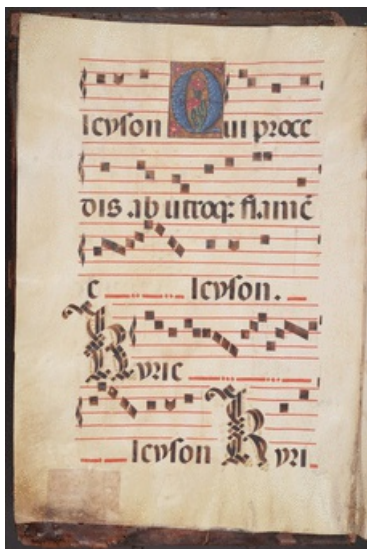 leyson Qui proce
dis ab utroq: flamē
e leyson.
Kyrie
leyson Kyri